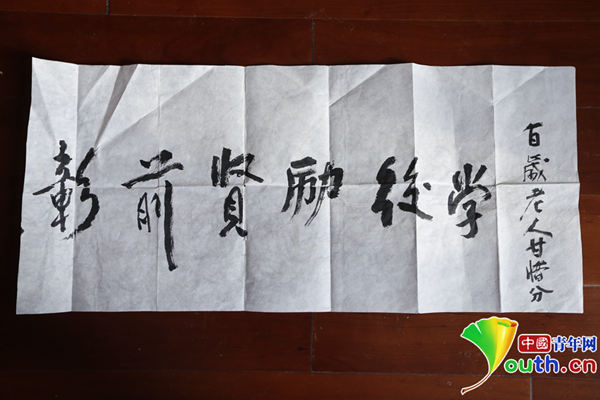 彰前贤励後学
百歲老人甘惜分
中國青年网
youth.cn